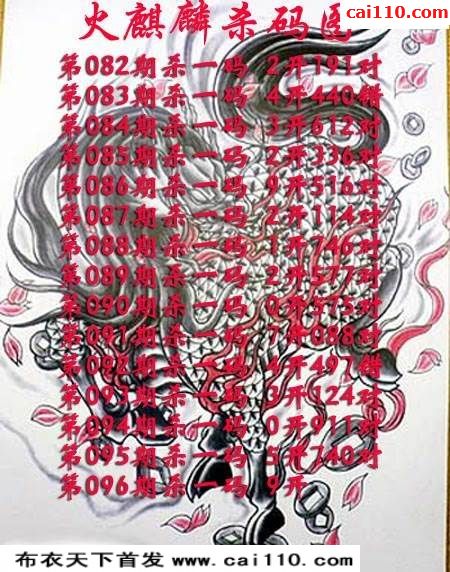 cai110.com
火麒麟杀码图
第082期杀一码 2开191对
第083期杀一码 4开440错
第084期杀一码 3开612对
第085期杀一码 2开336对
第086期杀一码 9开516对
第087期杀一码 2开114对
第088期杀一码 1开746对
第089期杀一码 2开577对
第090期杀一码 0开575对
第091期杀一码 7开088对
第092期杀一码 4开497错
第093期杀一码 3开124对
第094期杀一码 0开911对
第095期杀一码 5开740对
第096期杀一码 9开
布衣天下首发 www.cai110.com